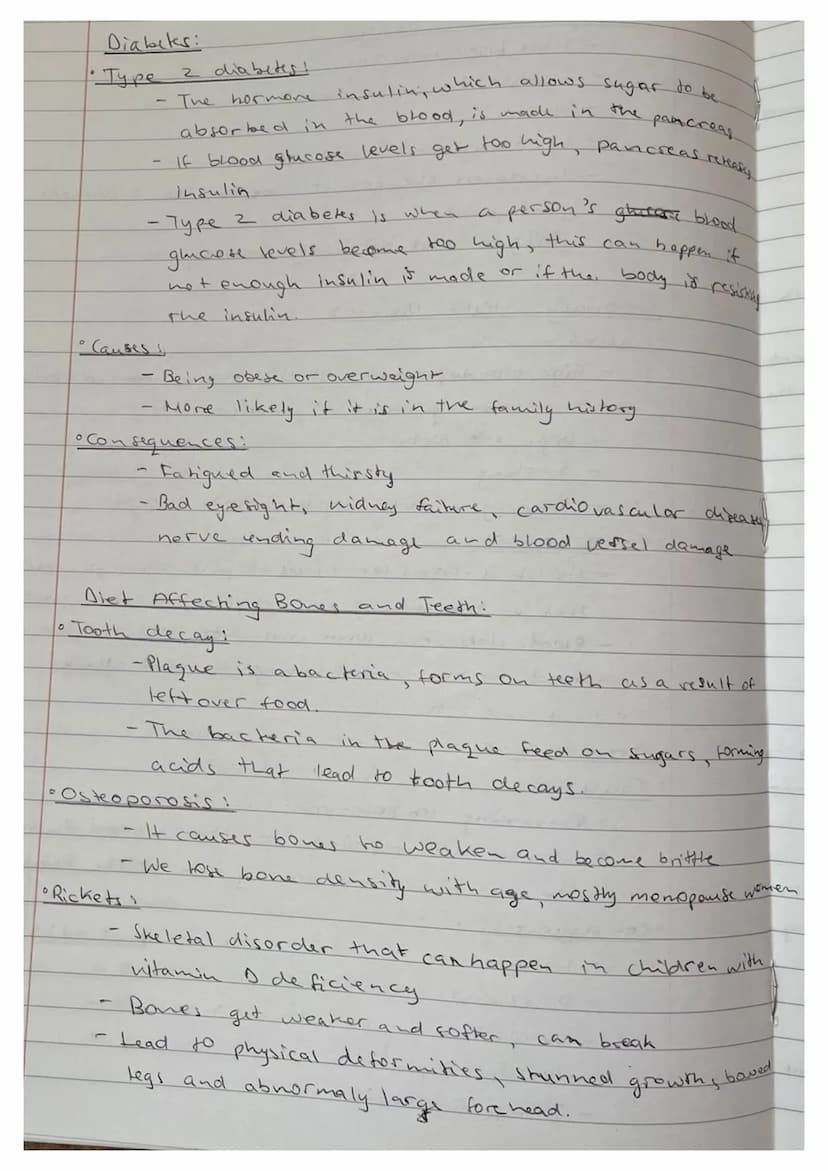 Diabetes:
• Type 2 diabetes:
- The hormone insulin, which allows sugar to be
absorbed in the blood, is made in the pancreas
- If blood glucose levels get too high, pancreas releases
insulin
- Type 2 diabetes is when a person's glucose blood
glucose levels become too high, this can happen if
not enough insulin is made or if the body is resisting
the insulin.
• Causes:
- Being obese or overweight
- More likely if it is in the family history
• Consequences:
- Fatigued and thirsty
- Bad eyesight, kidney failure, cardiovascular disease,
nerve ending damage and blood vessel damage
Diet Affecting Bones and Teeth:
• Tooth decay:
- Plaque is a bacteria, forms on teeth as a result of
left over food.
- The bacteria in the plaque feed on sugars, forming
acids that lead to tooth decays.
• Osteoporosis:
- It causes bones to weaken and become brittle
- We lose bone density with age, mostly menopause women
• Rickets:
- Skeletal disorder that can happen in children with
vitamin D deficiency
- Bones get weaker and softer, can break
- Lead to physical deformities, stunned growth, bowed
legs and abnormaly large forehead.